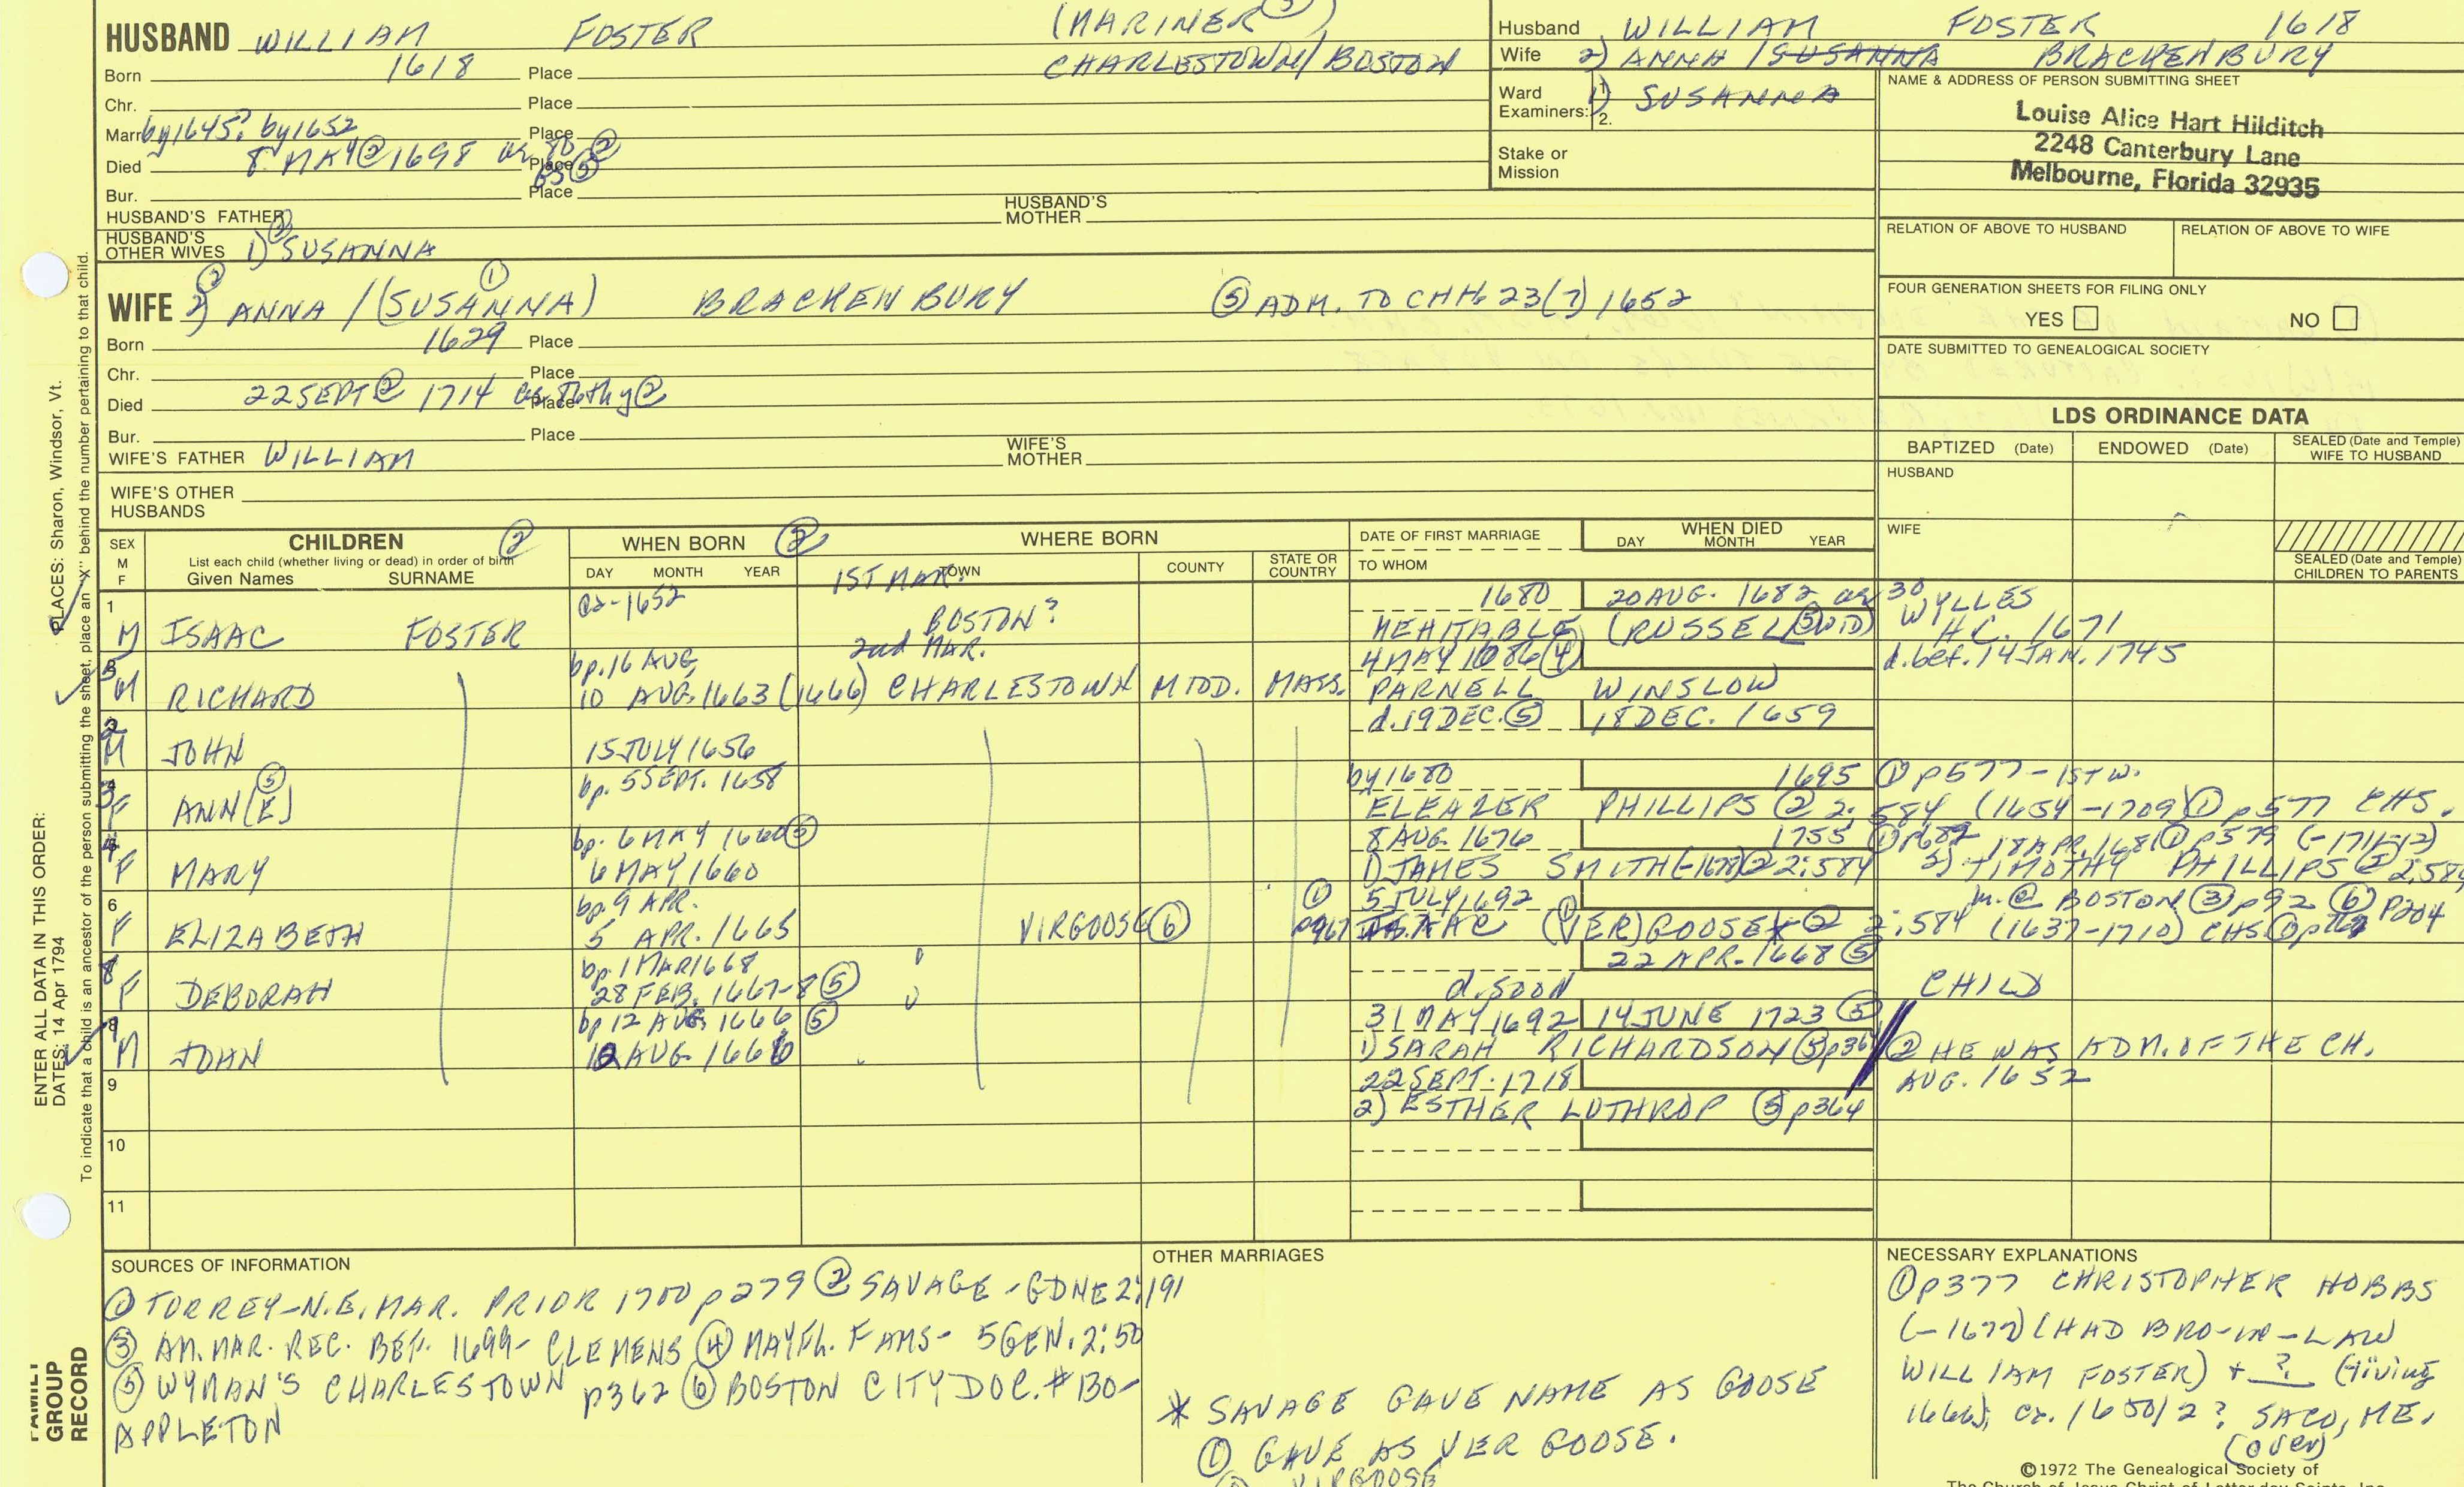 HUSBAND WILLIAM FOSTER (MARINER 5)
Born 1618 Place CHARLESTOWN/BOSTON
Chr. Place
Marr by 1645? by 1652 Place
Died 8 MAY ② 1698 ag 80 ② Place
85 ⑤
Bur. Place
HUSBAND'S FATHER HUSBAND'S MOTHER
HUSBAND'S OTHER WIVES 1) SUSANNA
WIFE 2) ANNA /(SUSANNA) ① BRACKENBURY ⑤ ADM. TO CHH. 23 (7) 1652
Born 1629 Place
Chr. Place
Died 22 SEPT ② 1714 Place
Bur. Place
WIFE'S FATHER WILLIAM WIFE'S MOTHER
WIFE'S OTHER HUSBANDS
Husband WILLIAM FOSTER 1618
Wife 2) ANNA /SUSANNA BRACKENBURY
Ward Examiners: 1) SUSANNA
2.
Stake or Mission
NAME & ADDRESS OF PERSON SUBMITTING SHEET
Louise Alice Hart Hilditch
2248 Canterbury Lane
Melbourne, Florida 32935
RELATION OF ABOVE TO HUSBAND RELATION OF ABOVE TO WIFE
FOUR GENERATION SHEETS FOR FILING ONLY
YES NO
DATE SUBMITTED TO GENEALOGICAL SOCIETY
LDS ORDINANCE DATA
BAPTIZED (Date) ENDOWED (Date) SEALED (Date and Temple) WIFE TO HUSBAND
HUSBAND
WIFE
SEALED (Date and Temple) CHILDREN TO PARENTS
SEX M F
CHILDREN ②
List each child (whether living or dead) in order of birth
Given Names SURNAME
WHEN BORN ②
DAY MONTH YEAR
WHERE BORN
TOWN COUNTY STATE OR COUNTRY
DATE OF FIRST MARRIAGE
TO WHOM
WHEN DIED
DAY MONTH YEAR
1ST MAR.
1 ca-1652 1680 20 AUG. 1682 ag 30
M ISAAC FOSTER BOSTON? MEHITABLE (RUSSELL ⑤ WID) WYLLES
H.C. 1671
2nd MAR.
bp. 16 AUG. 4 MAY 1686 ④ d. bef. 14 JAN. 1745
M RICHARD 10 AUG. 1663 (1666) CHARLESTOWN MIDD. MASS. PARNELL WINSLOW
2 d. 19 DEC. ⑤ 18 DEC. 1659
M JOHN 15 JULY 1656
3 bp. 5 SEPT. 1658 by 1680 1695 ① p577-1ST W.
F ANN(E) ⑤ ELEAZER PHILLIPS ② 2:584 (1654-1709) ① p577 CHS.
4 bp. 6 MAY 1660 ⑤ 8 AUG. 1676 1755 18 APR. 1681 ① p579 (-1711-12)
F MARY 6 MAY 1660 1) JAMES SMITH (-1678) ② 2:584 2) TIMOTHY PHILLIPS ② 2:584
6 bp. 9 APR. ① 5 JULY 1692 m. @ BOSTON ③ p92 ⑥ p204
F ELIZABETH 5 APR. 1665 VIRGOOSE ⑥ ISAAC (VER)GOOSE* ② 2:584 (1637-1710) CHS
8 bp. 1 MAR 1668 22 APR. 1668 ⑤
F DEBORAH 28 FEB. 1667-8 ⑤ d. SOON CHILD
bp 12 AUG. 1666 ⑤ 31 MAY 1692 14 JUNE 1723 ⑤
M JOHN AUG. 1666 1) SARAH RICHARDSON ② HE WAS ADM. OF THE CH.
9 22 SEPT. 1718 AUG. 1652
2) ESTHER LOTHROP ⑤ p364
10
11
SOURCES OF INFORMATION
① TORREY-N.E. MAR. PRIOR 1700 p279 ② SAVAGE-GDNE 2:191
③ AM. MAR. REC. BEF. 1699- CLEMENS ④ MAYFL. FAMS- 5 GEN. 2:50
⑤ WYMAN'S CHARLESTOWN p362 ⑥ BOSTON CITY DOC. #130-
APPLETON
OTHER MARRIAGES
* SAVAGE GAVE NAME AS GOOSE
① GAVE AS VER GOOSE.
VIRGOOSE
NECESSARY EXPLANATIONS
① p377 CHRISTOPHER HOBBS
(-1677) (HAD BRO-IN-LAW
WILLIAM FOSTER) + ? (living
1666); ca. 1650/2? SACO, ME.
(over)
©1972 The Genealogical Society of
The Church of Jesus Christ of Latter-day Saints, Inc.
PLACES: Sharon, Windsor, Vt.
ENTER ALL DATA IN THIS ORDER:
DATES: 14 Apr 1794
To indicate that a child is an ancestor of the person submitting the sheet, place an "X" behind the number pertaining to that child.
FAMILY GROUP RECORD